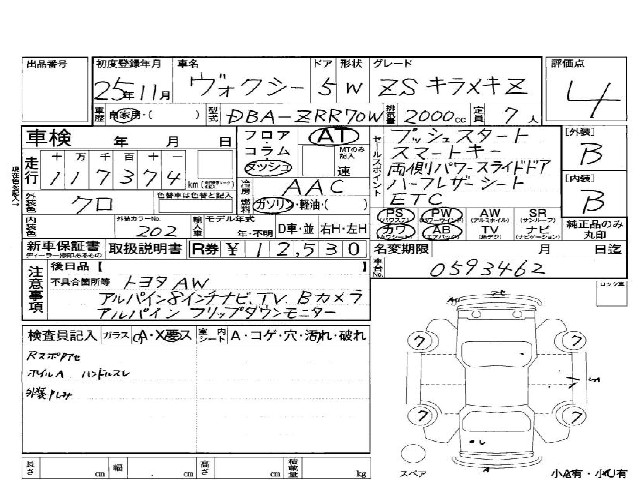 出品番号 初度登録年月 車名 ドア 形状 グレード 評価点
25年11月 ヴォクシー 5 W ZSキラメキZ 4
車歴 自家用・( ) 型式 DBA-ZRR70W 排気量 2000cc 定員 7人
車検 年 月 日 フロア・コラム ダッシュ AT MTのみ記入 速
セールスポイント プッシュスタート [外装] B
スマートキー
両側パワースライドドア
ハーフレザーシート [内装] B
ETC
走行 十 万 千 百 十 一
117374 km
冷房 AAC
外装色 クロ 色替車は色替と記入 燃料 ガソリン・軽油・( )
PS PW AW SR
(パワステ) (パワーウィンドウ) (アルミホイル) (サンルーフ)
カワ AB TV ナビ
(エアバッグ) (ナビゲーション)
純正品のみ丸印
内装色 外装カラーNo. 202 輸入車 モデル年式 年・不明 D車・並 右H・左H
新車保証書 取扱説明書 R券 ¥12,530 名変期限 月 日迄
ディーラー捺印あるもの
車台No. 0593462
注意事項 後日品【 】
不具合箇所等 トヨタAW
アルパイン8インチナビ、TV Bカメラ
アルパイン フリップダウンモニター
検査員記入 ガラス A・X要ス 室内シート A・コゲ・穴・汚れ・破れ
ホイルA ハンドルスレ
7 7
7 7
スペア 小A有・小U有
長さ cm 幅 cm 高さ cm 積載量 kg